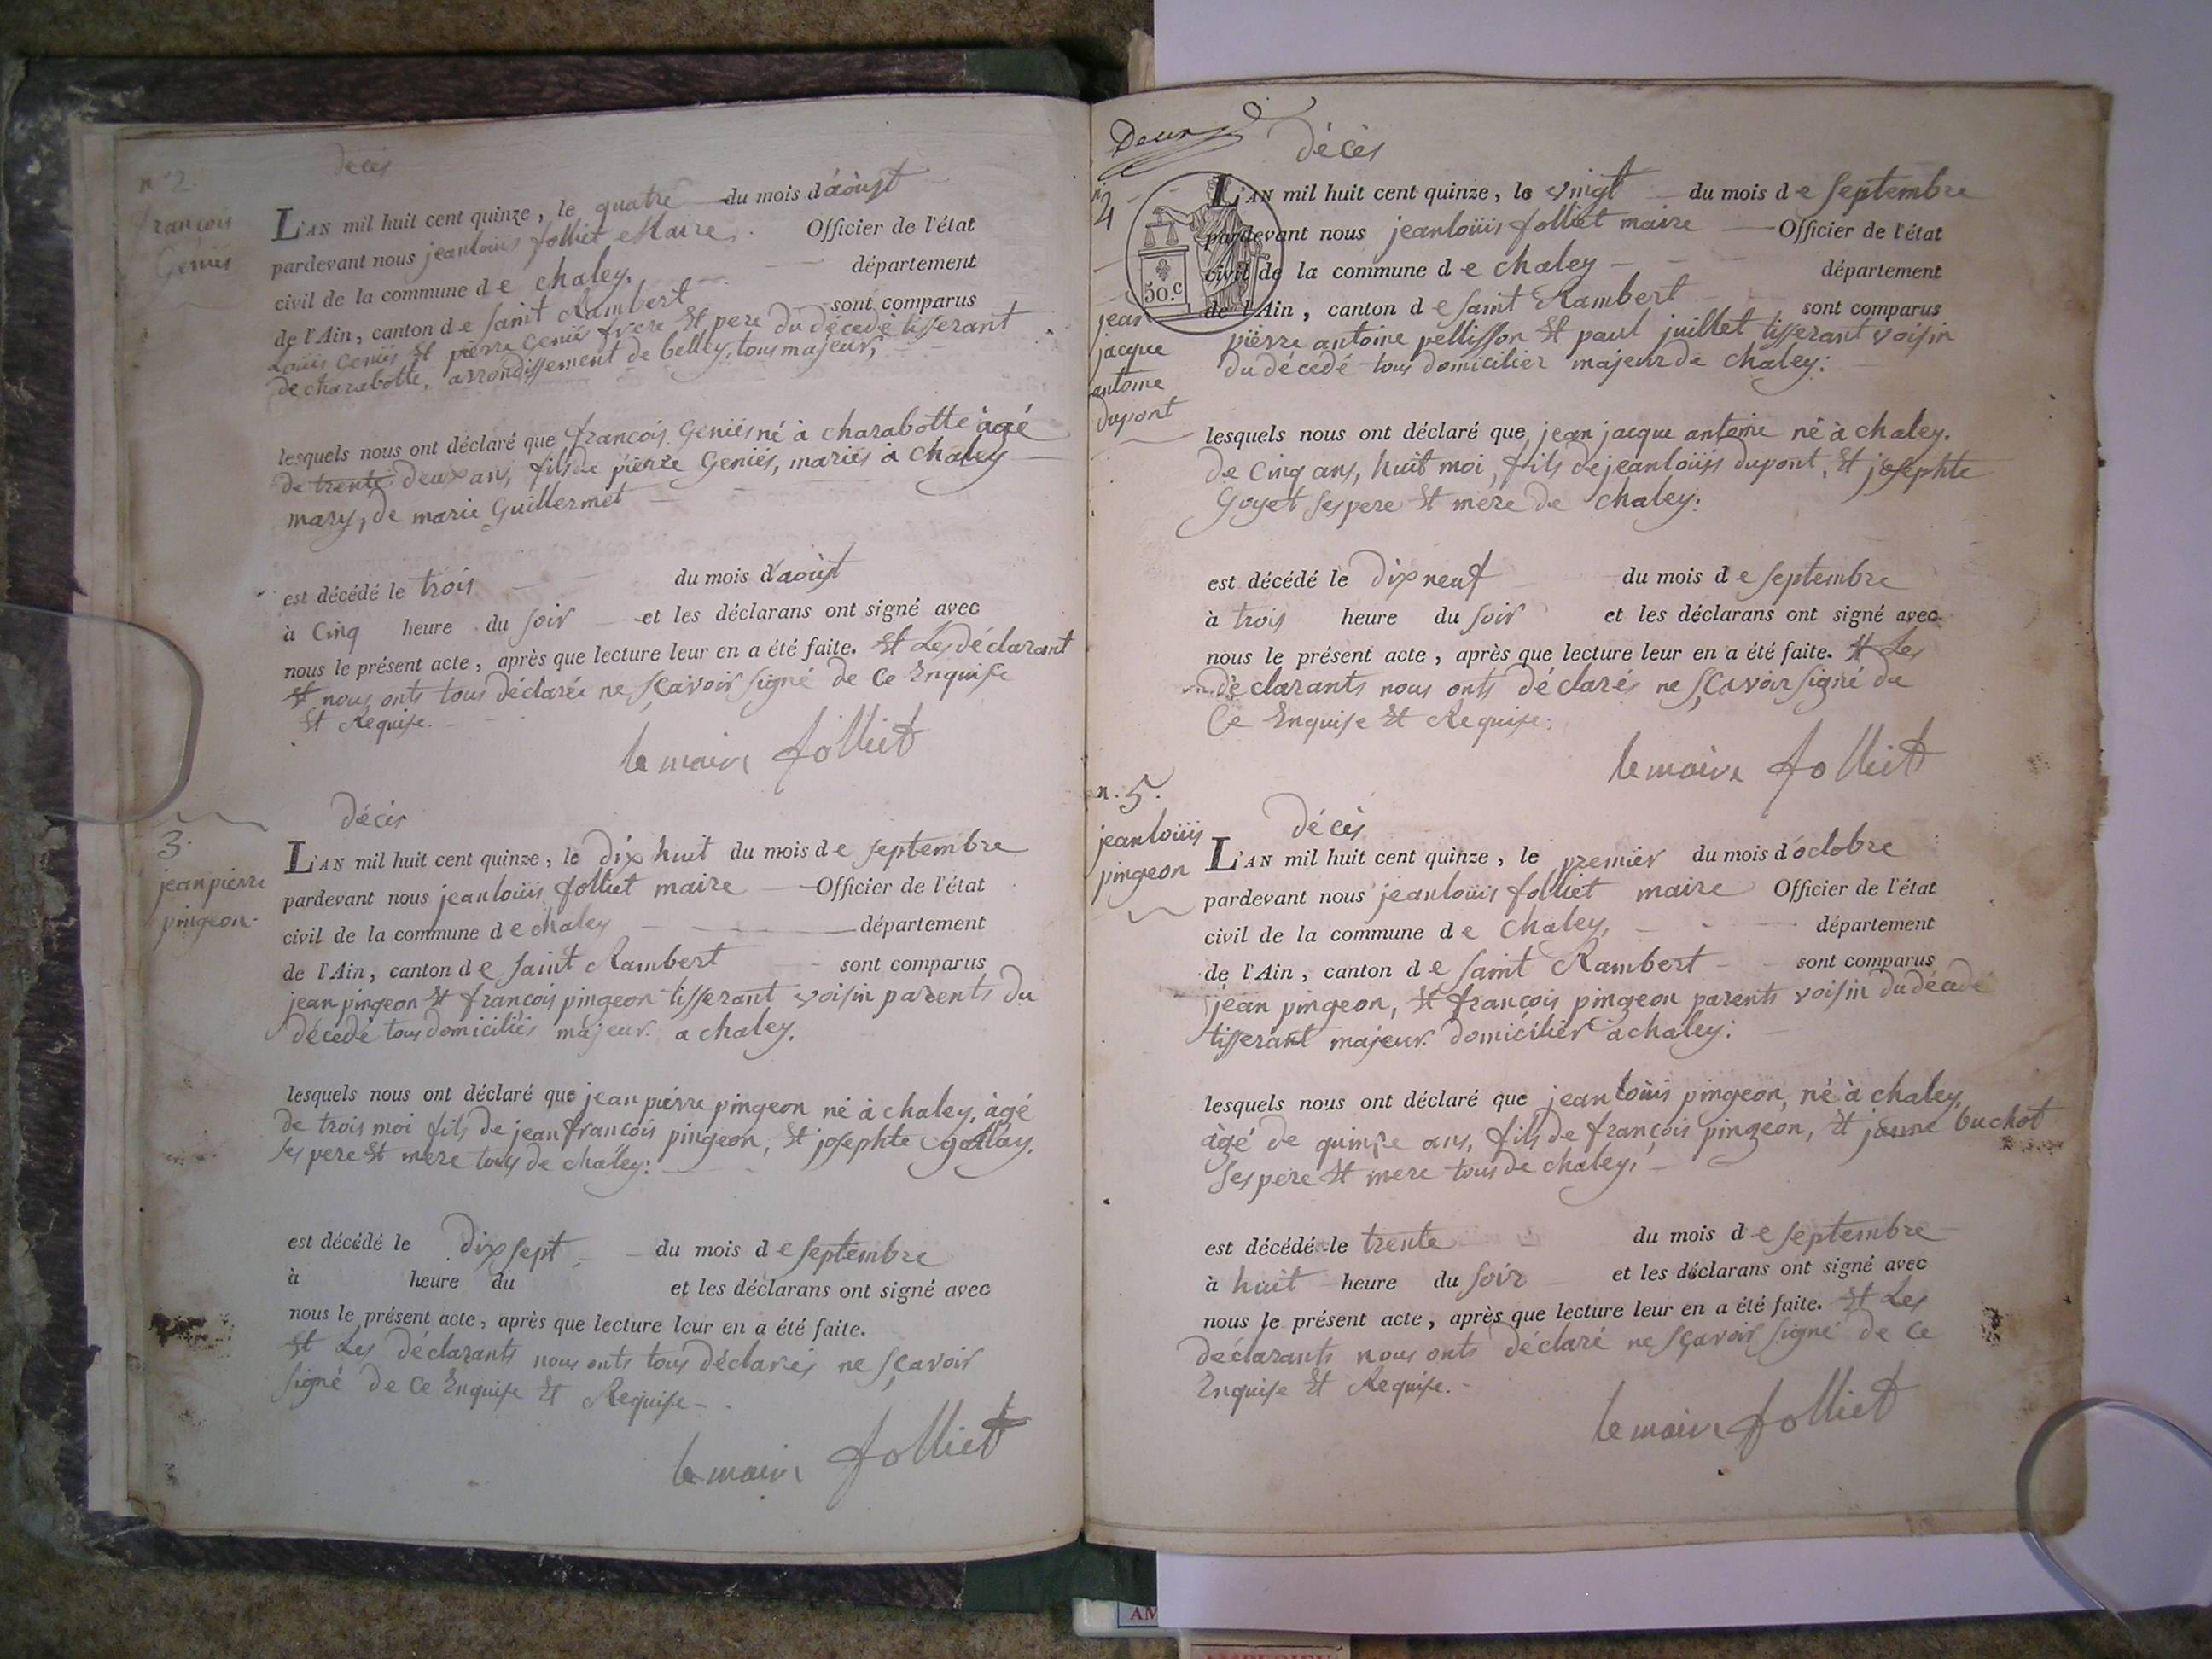 n° 2.
françois
Geniés
décès
L'AN mil huit cent quinze, le quatre du mois d'aöust
pardevant nous jeanloüis folliet Maire, Officier de l'état
civil de la commune de chaley, département
de l'Ain, canton de saint Rambert sont comparus
Loüis Geniés Et pierre Geniés frere Et pere du décedé tisserant
de charabotte, arrondissement de belley, tous majeur,
lesquels nous ont déclaré que françois Geniés né à charabotte àgé
de trente deux ans, fils de pierre Geniés, mariés a chaley
mary, de marie Guillermet
est décédé le trois du mois d'aöust
à Cinq heure du soir et les déclarans ont signé avec
nous le présent acte, après que lecture leur en a été faite. Et Les déclarant
Et nous onts tous déclarée ne sçavoir signé de Ce Enquise
Et Requise.
le maire folliet
3.
jean pierre
pingeon.
décès
L'AN mil huit cent quinze, le dix huit du mois de septembre
pardevant nous jeanloüis folliet maire Officier de l'état
civil de la commune de chaley département
de l'Ain, canton de saint Rambert sont comparus
jean pingeon Et françois pingeon tisserant voisin parents du
décedé tous domiciliés majeur a chaley.
lesquels nous ont déclaré que jean pierre pingeon né à chaley, àgé
de trois moi fils de jean françois pingeon, Et josephte
ses pere Et mere tous de chaley:
est décédé le dix sept du mois de septembre
à heure du et les déclarans ont signé avec
nous le présent acte, après que lecture leur en a été faite.
Et Les déclarants nous onts tous déclarés ne sçavoir
signé de Ce Enquise Et Requise
le maire folliet
décès
n° 4
50.c
jean
jacque
antoine
dupont
L'AN mil huit cent quinze, le vingt du mois de septembre
pardevant nous jeanloüis folliet maire Officier de l'état
civil de la commune de chaley département
de l'Ain, canton de saint Rambert sont comparus
pierre antoine pellisson Et paul juillet tisserant voisin
du décedé tous domicilier majeur de chaley:
lesquels nous ont déclaré que jean jacque antoine né à chaley.
de Cinq ans, huit moi, fils de jeanloüis dupont, Et josephte
Goyet ses pere Et mere de chaley:
est décédé le dix neuf du mois de septembre
à trois heure du soir et les déclarans ont signé avec
nous le présent acte, après que lecture leur en a été faite. Et Les
déclarants nous onts déclarés ne sçavoir signé de
Ce Enquise Et Requise:
le maire folliet
n. 5.
jeanloüis
pingeon
décès
L'AN mil huit cent quinze, le premier du mois d'octobre
pardevant nous jeanloüis folliet maire Officier de l'état
civil de la commune de chaley, département
de l'Ain, canton de saint Rambert sont comparus
jean pingeon, Et françois pingeon parents voisin du décédé
tisserant majeur domicilier à chaley:
lesquels nous ont déclaré que jean loüis pingeon, né à chaley,
àgé de quinze ans, fils de françois pingeon, Et jeanne buchot
ses pere Et mere tous de chaley,
est décédé le trente du mois de septembre
à huit heure du soir et les déclarans ont signé avec
nous le présent acte, après que lecture leur en a été faite. Et Les
déclarants nous onts déclaré ne sçavoir signé de Ce
Enquise Et Requise.
le maire folliet